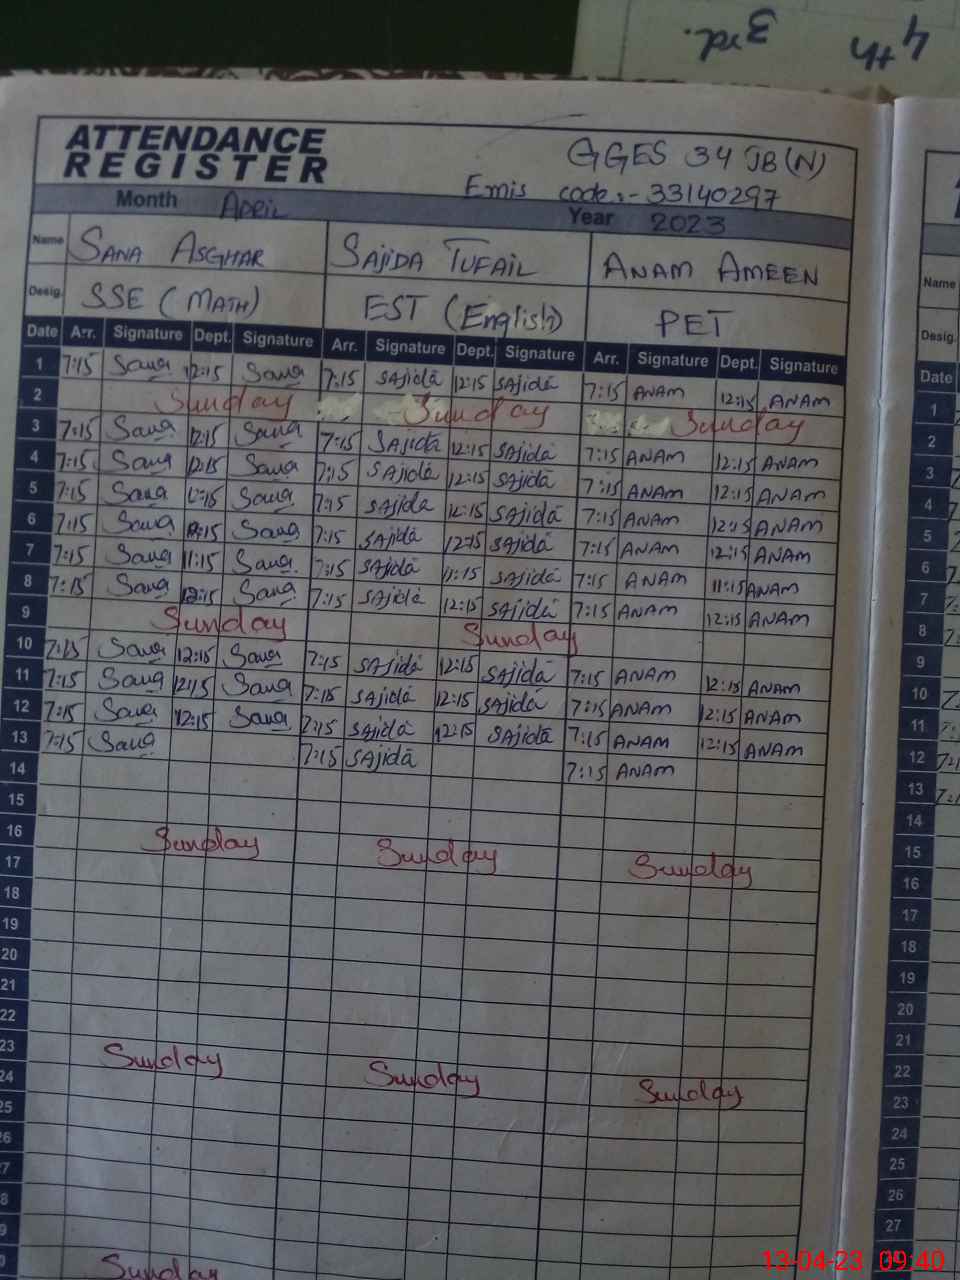 4th 3rd.
ATTENDANCE
REGISTER
GGES 34 JB(N)
Emis code:- 33140297
Month April Year 2023
Name SANA ASGHAR SAJIDA TUFAIL ANAM AMEEN
Desig. SSE (MATH) EST (English) PET
Date Arr. Signature Dept. Signature Arr. Signature Dept. Signature Arr. Signature Dept. Signature
1 7:15 Sana 12:15 Sana 7:15 SAjidā 12:15 SAjidā 7:15 ANAM 12:15 ANAM
2 Sunday Sunday Sunday
3 7:15 Sana 12:15 Sana 7:15 SAjidā 12:15 SAjidā 7:15 ANAM 12:15 ANAM
4 7:15 Sana 12:15 Sana 7:15 SAjidā 12:15 SAjidā 7:15 ANAM 12:15 ANAM
5 7:15 Sana 12:15 Sana 7:15 SAjidā 12:15 SAjidā 7:15 ANAM 12:15 ANAM
6 7:15 Sana 12:15 Sana 7:15 SAjidā 12:15 SAjidā 7:15 ANAM 12:15 ANAM
7 7:15 Sana 11:15 Sana 7:15 SAjidā 11:15 SAjidā 7:15 ANAM 11:15 ANAM
8 7:15 Sana 12:15 Sana 7:15 SAjidā 12:15 SAjidā 7:15 ANAM 12:15 ANAM
9 Sunday Sunday
10 7:15 Sana 12:15 Sana 7:15 SAjidā 12:15 SAjidā 7:15 ANAM 12:15 ANAM
11 7:15 Sana 12:15 Sana 7:15 SAjidā 12:15 SAjidā 7:15 ANAM 12:15 ANAM
12 7:15 Sana 12:15 Sana 7:15 SAjidā 12:15 SAjidā 7:15 ANAM 12:15 ANAM
13 7:15 Sana 7:15 SAjidā 7:15 ANAM
14
15
16 Sunday Sunday Sunday
17
18
19
20
21
22
23 Sunday Sunday Sunday
24
25
26
27
28
29
30 Sunday
Name
Desig.
Date
1
2
3
4
5
6
7
8
9
10
11
12
13
14
15
16
17
18
19
20
21
22
23
24
25
26
27
13-04-23 09:40